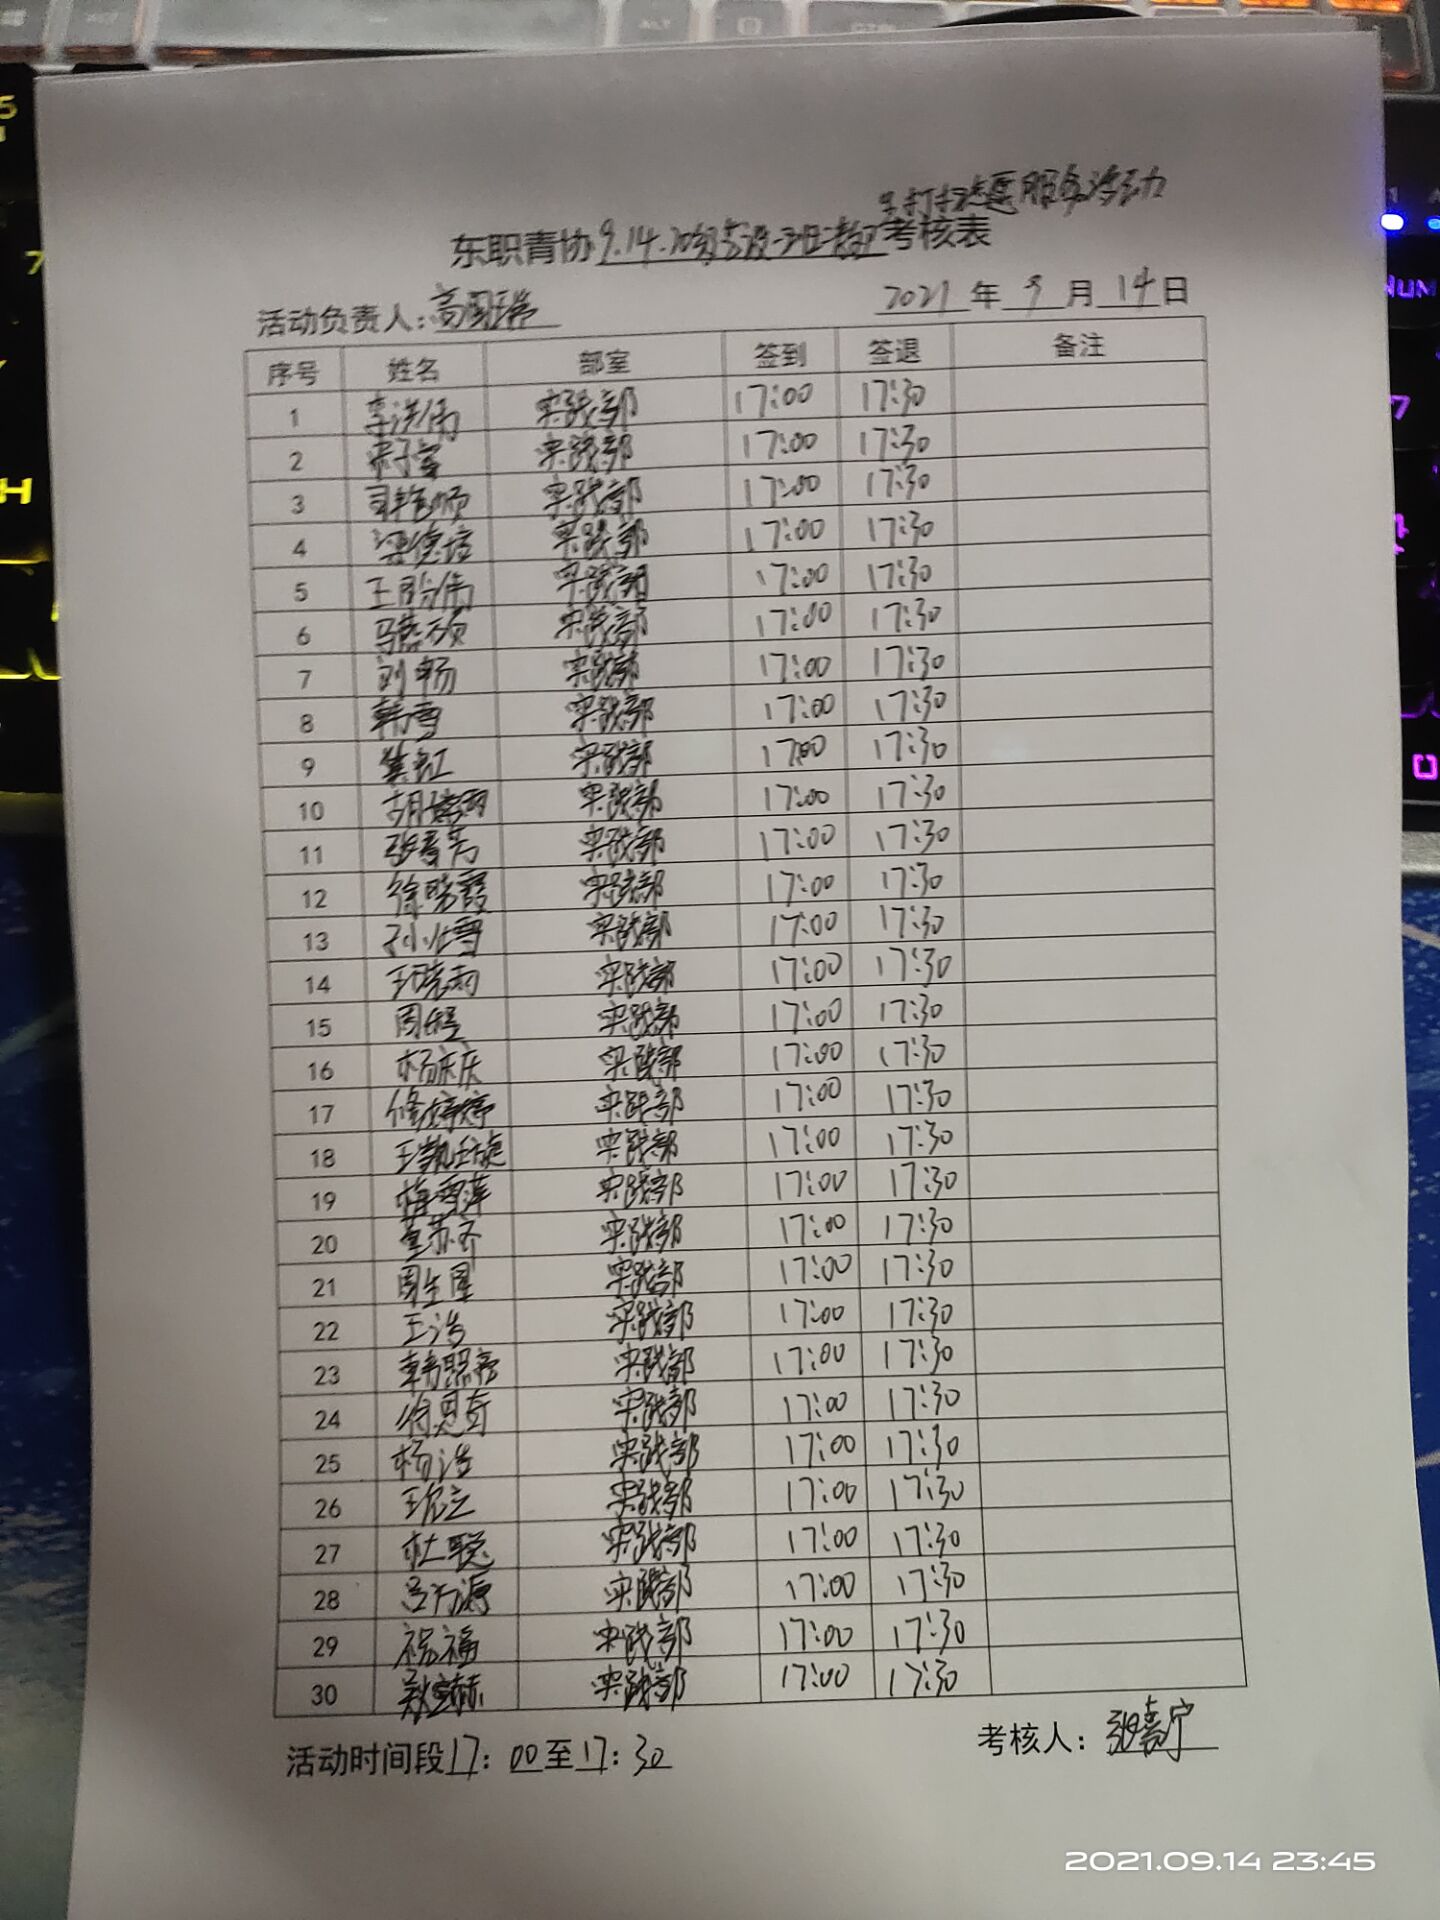 打扫志愿服务活动
东职青协9.14.20级 考核表
活动负责人:高国瑞 2021年9月14日
序号 姓名 部室 签到 签退 备注
1 李洪伟 实践部 17:00 17:30
2 宋子雪 实践部 17:00 17:30
3 司艳顺 实践部 17:00 17:30
4 梁德培 实践部 17:00 17:30
5 王 伟 实践部 17:00 17:30
6 马燕硕 实践部 17:00 17:30
7 刘畅 实践部 17:00 17:30
8 韩雪 实践部 17:00 17:30
9 实践部 17:00 17:30
10 胡 雨 实践部 17:00 17:30
11 张春芳 实践部 17:00 17:30
12 徐晓霞 实践部 17:00 17:30
13 孙 雪 实践部 17:00 17:30
14 王晓雨 实践部 17:00 17:30
15 周 实践部 17:00 17:30
16 杨东庆 实践部 17:00 17:30
17 修婷婷 实践部 17:00 17:30
18 王凯璇 实践部 17:00 17:30
19 梅雪莲 实践部 17:00 17:30
20 董苏齐 实践部 17:00 17:30
21 周生 实践部 17:00 17:30
22 王浩 实践部 17:00 17:30
23 韩照亮 实践部 17:00 17:30
24 徐恩奇 实践部 17:00 17:30
25 杨浩 实践部 17:00 17:30
26 王 立 实践部 17:00 17:30
27 杜聪 实践部 17:00 17:30
28 吕 源 实践部 17:00 17:30
29 祝福 实践部 17:00 17:30
30 实践部 17:00 17:30
活动时间段17:00至17:30 考核人:张嘉宁
2021.09.14 23:45